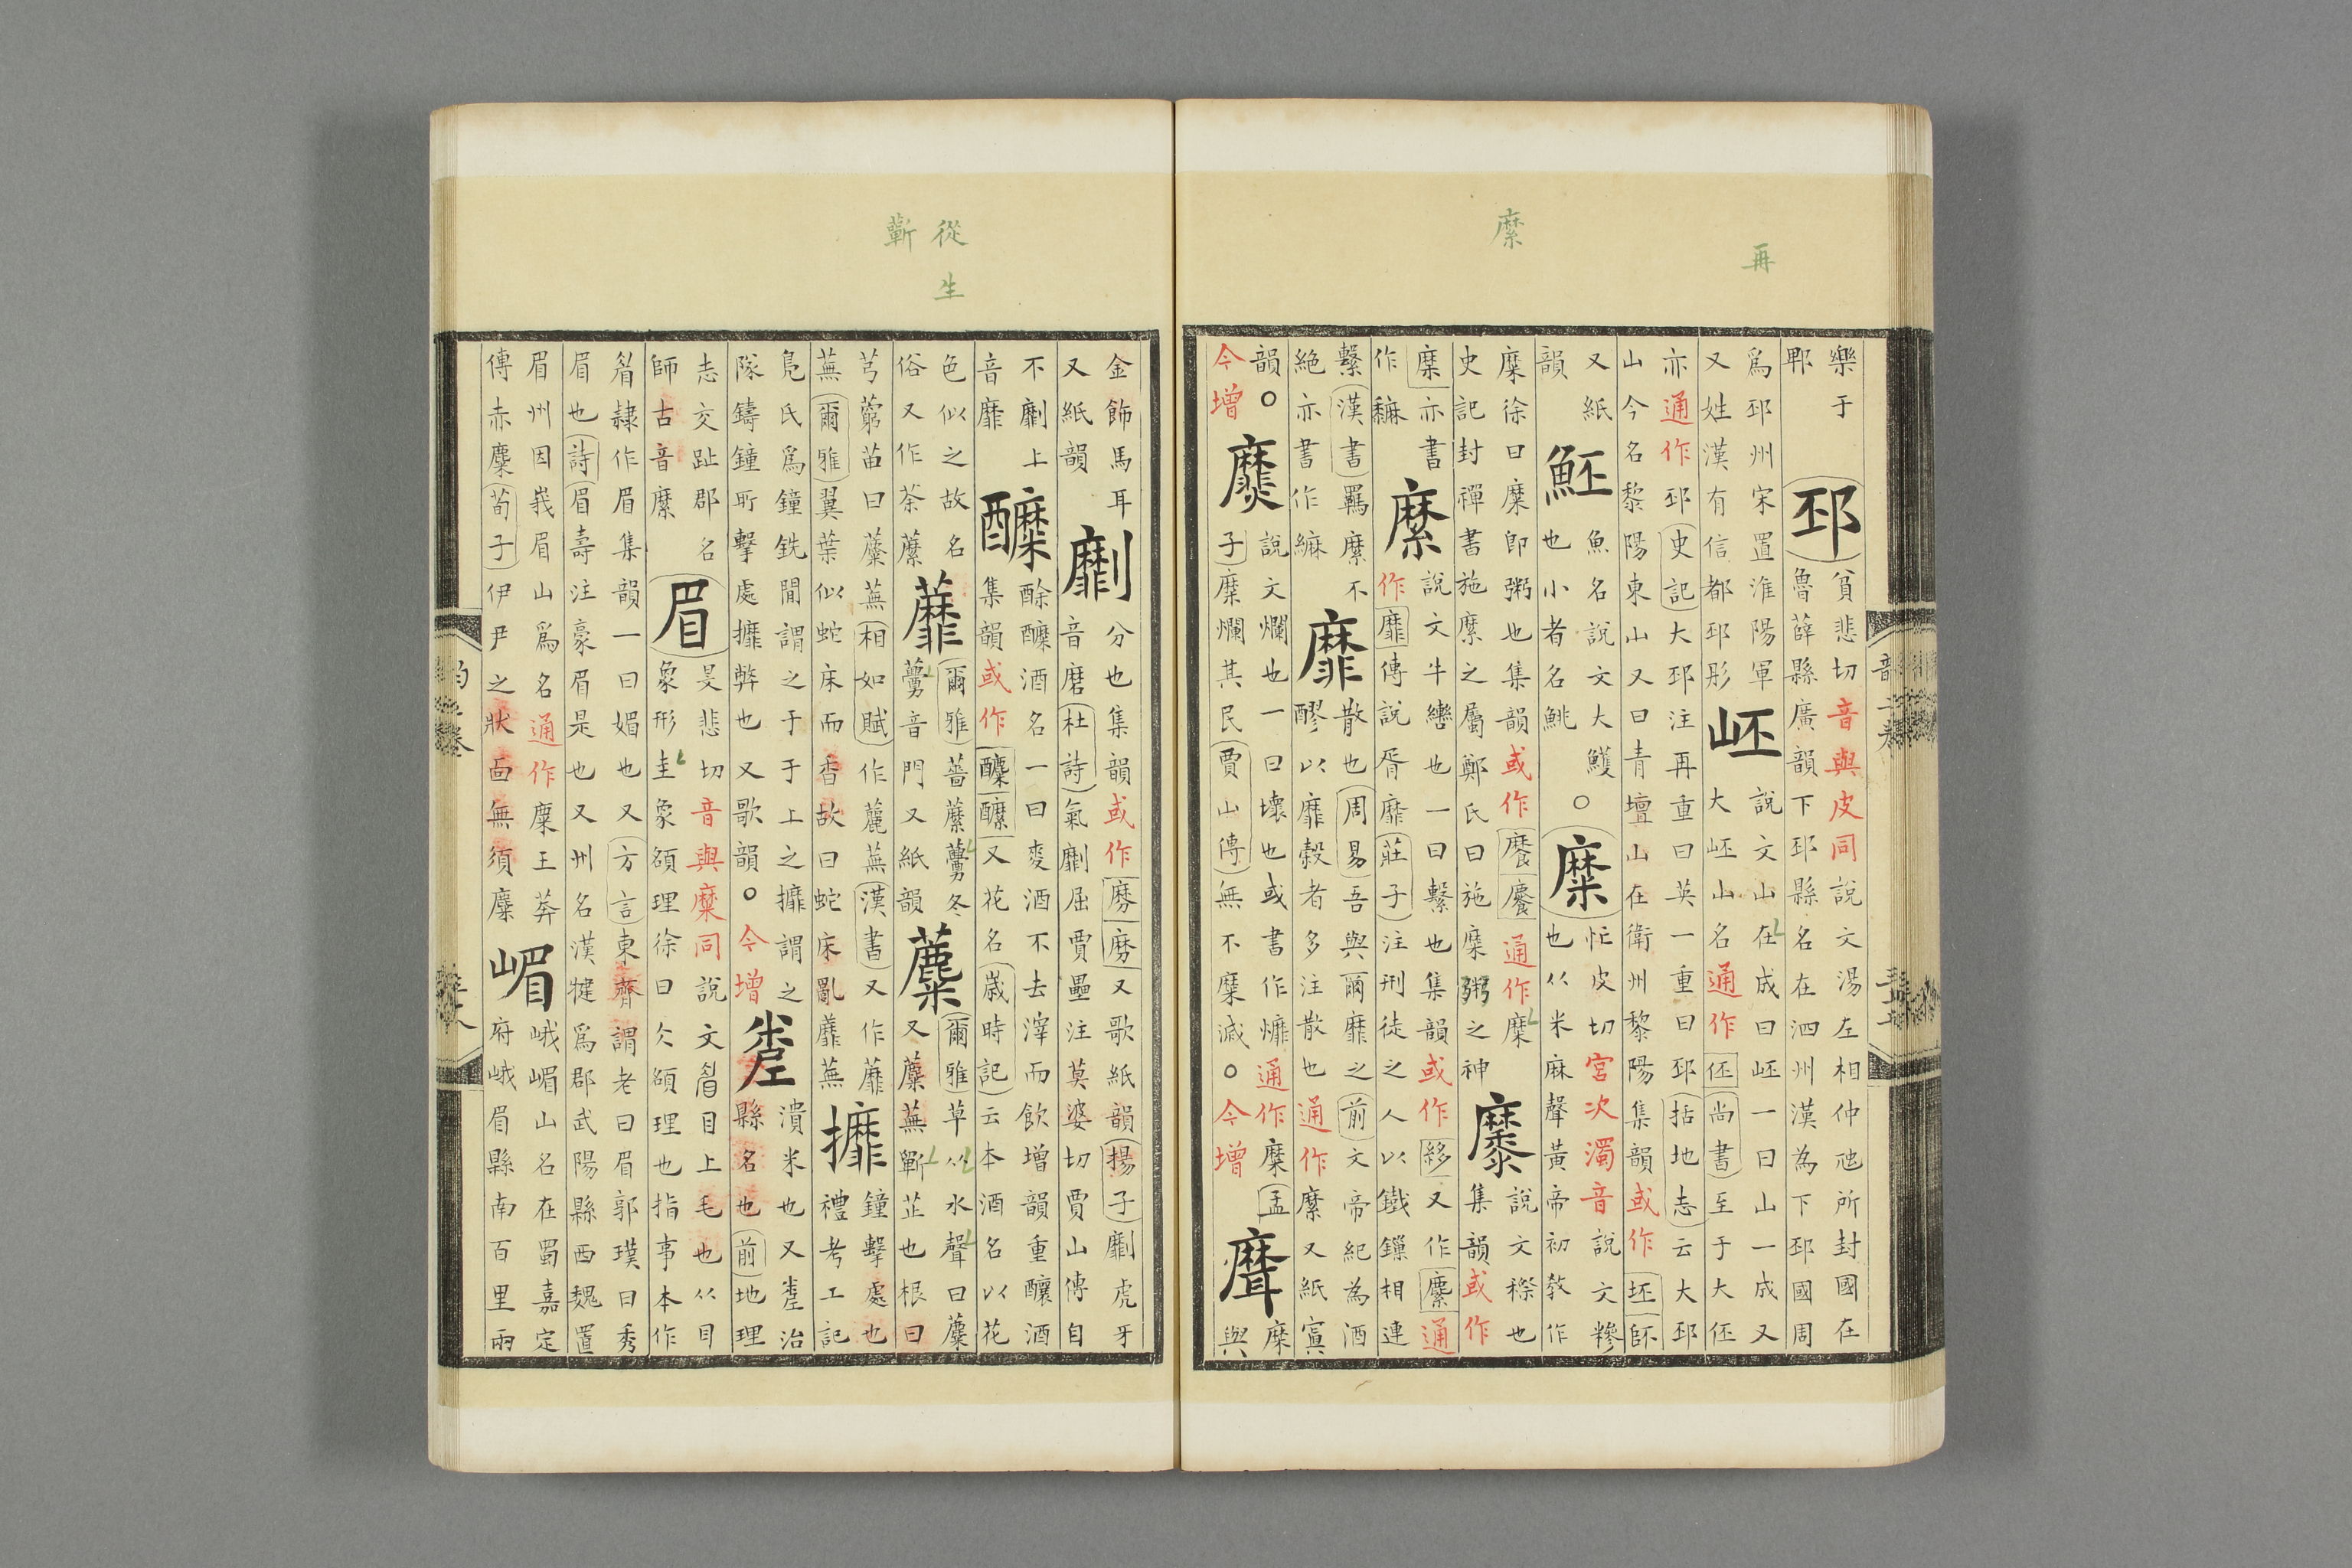 再
縻
樂于郫邳貧悲切音與皮同說文湯左相仲虺所封國在魯薛縣廣韻下邳縣名在泗州漢為下邳國周
爲邳州宋置淮陽軍又姓漢有信都邳彤岯說文山在成曰岯一曰山一成又大岯山名通作伾尚書至于大伾
亦通作邳史記大邳注再重曰英一重曰邳括地志云大邳山今名黎陽東山又曰青壇山在衛州黎陽集韻或作坯
又紙韻魾魚名說文大鱯也小者名鮡○糜忙皮切宮次濁音說文糝也从米麻聲黃帝初教作
糜徐曰糜卽粥也集韻或作通作糜史記封禪書施縻之屬鄭氏曰施糜粥之神穈說文穄也集韻或作
糜亦書作縻說文牛轡也一曰繫也集韻或作又作通作靡傳說胥靡莊子注刑徒之人以鐵鏁相連
繫漢書羈縻不絕亦書作靡散也周易吾與爾靡之前文帝紀為酒醪以靡穀者多注散也通作縻又紙寘
韻○今增爢說文爛也一曰壞也或書作通作糜孟子糜爛其民賈山傳無不糜滅○今增糜與
從生
蘄
金飾馬耳又紙韻劘分也集韻或作又歌紙韻揚子劘虎牙音磨杜詩氣劘屈賈壘注莫婆切賈山傳自
不劘上音靡醾酴醾酒名一曰麥酒不去滓而飲增韻重釀酒集韻或作又花名歲時記云本酒名以花
色似之故名俗又作荼蘼蘼爾雅薔蘼虋冬虋音門又紙韻蘪爾雅草从水聲曰蘪又蘪蕪蘄芷也根曰
芎藭苗曰蘪蕪相如賦作蘪蕪漢書又作蘼蕪爾雅翼葉似蛇床而香故曰蛇床亂蘼蕪攠鐘擊處也禮考工記
鳧氏爲鐘銑間謂之于于上之攠謂之隊鑄鐘所擊處攠弊也又歌韻○今增潰米也又治縣名也前地理
志交趾郡名師古音縻眉旻悲切音與糜同說文目上毛也从目象形圭象頟理徐曰仌頟理也指事本作
隸作眉集韻一曰媚也又方言東齊謂老曰眉郭璞曰秀眉也詩眉壽注豪眉是也又州名漢犍爲郡武陽縣西魏置
眉州因峩眉山爲名通作麋王莽傳赤麋荀子伊尹之狀面無須麋嵋峨嵋山名在蜀嘉定府峨眉縣南百里兩